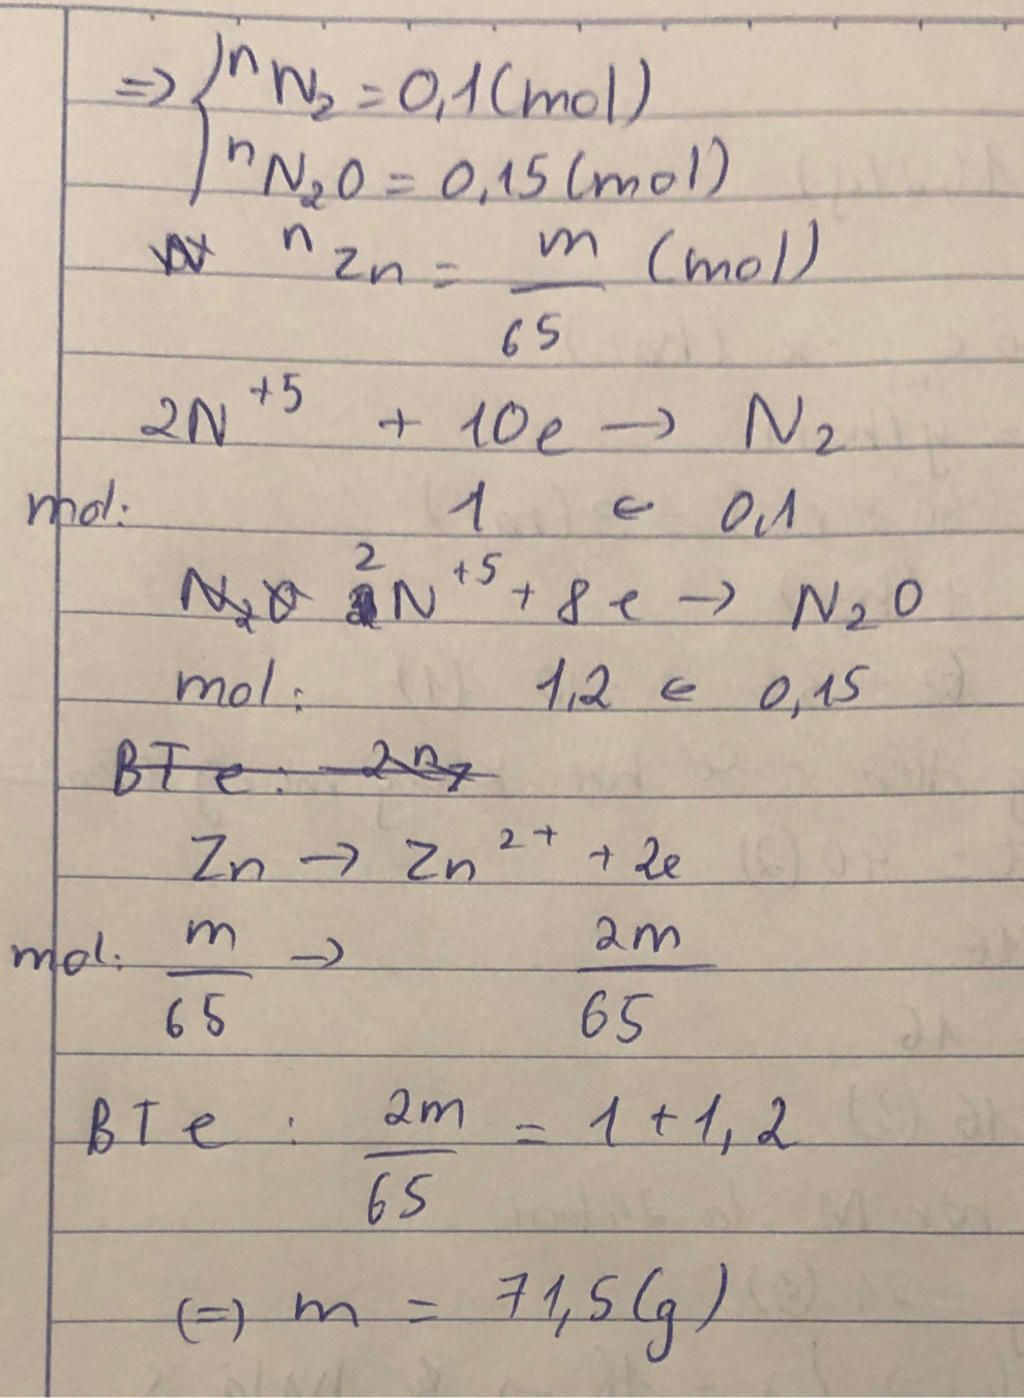 => { nN₂ = 0,1 (mol)
nN₂O = 0,15 (mol)
nZn = m/65 (mol)
2N⁺⁵ + 10e → N₂
mol: 1 ← 0,1
N₂O 2N⁺⁵ + 8e → N₂O
mol: 1,2 ← 0,15
BTe: 2n
Zn → Zn²⁺ + 2e
mol: m/65 → 2m/65
BTe: 2m/65 = 1 + 1,2
(=) m = 71,5 (g)